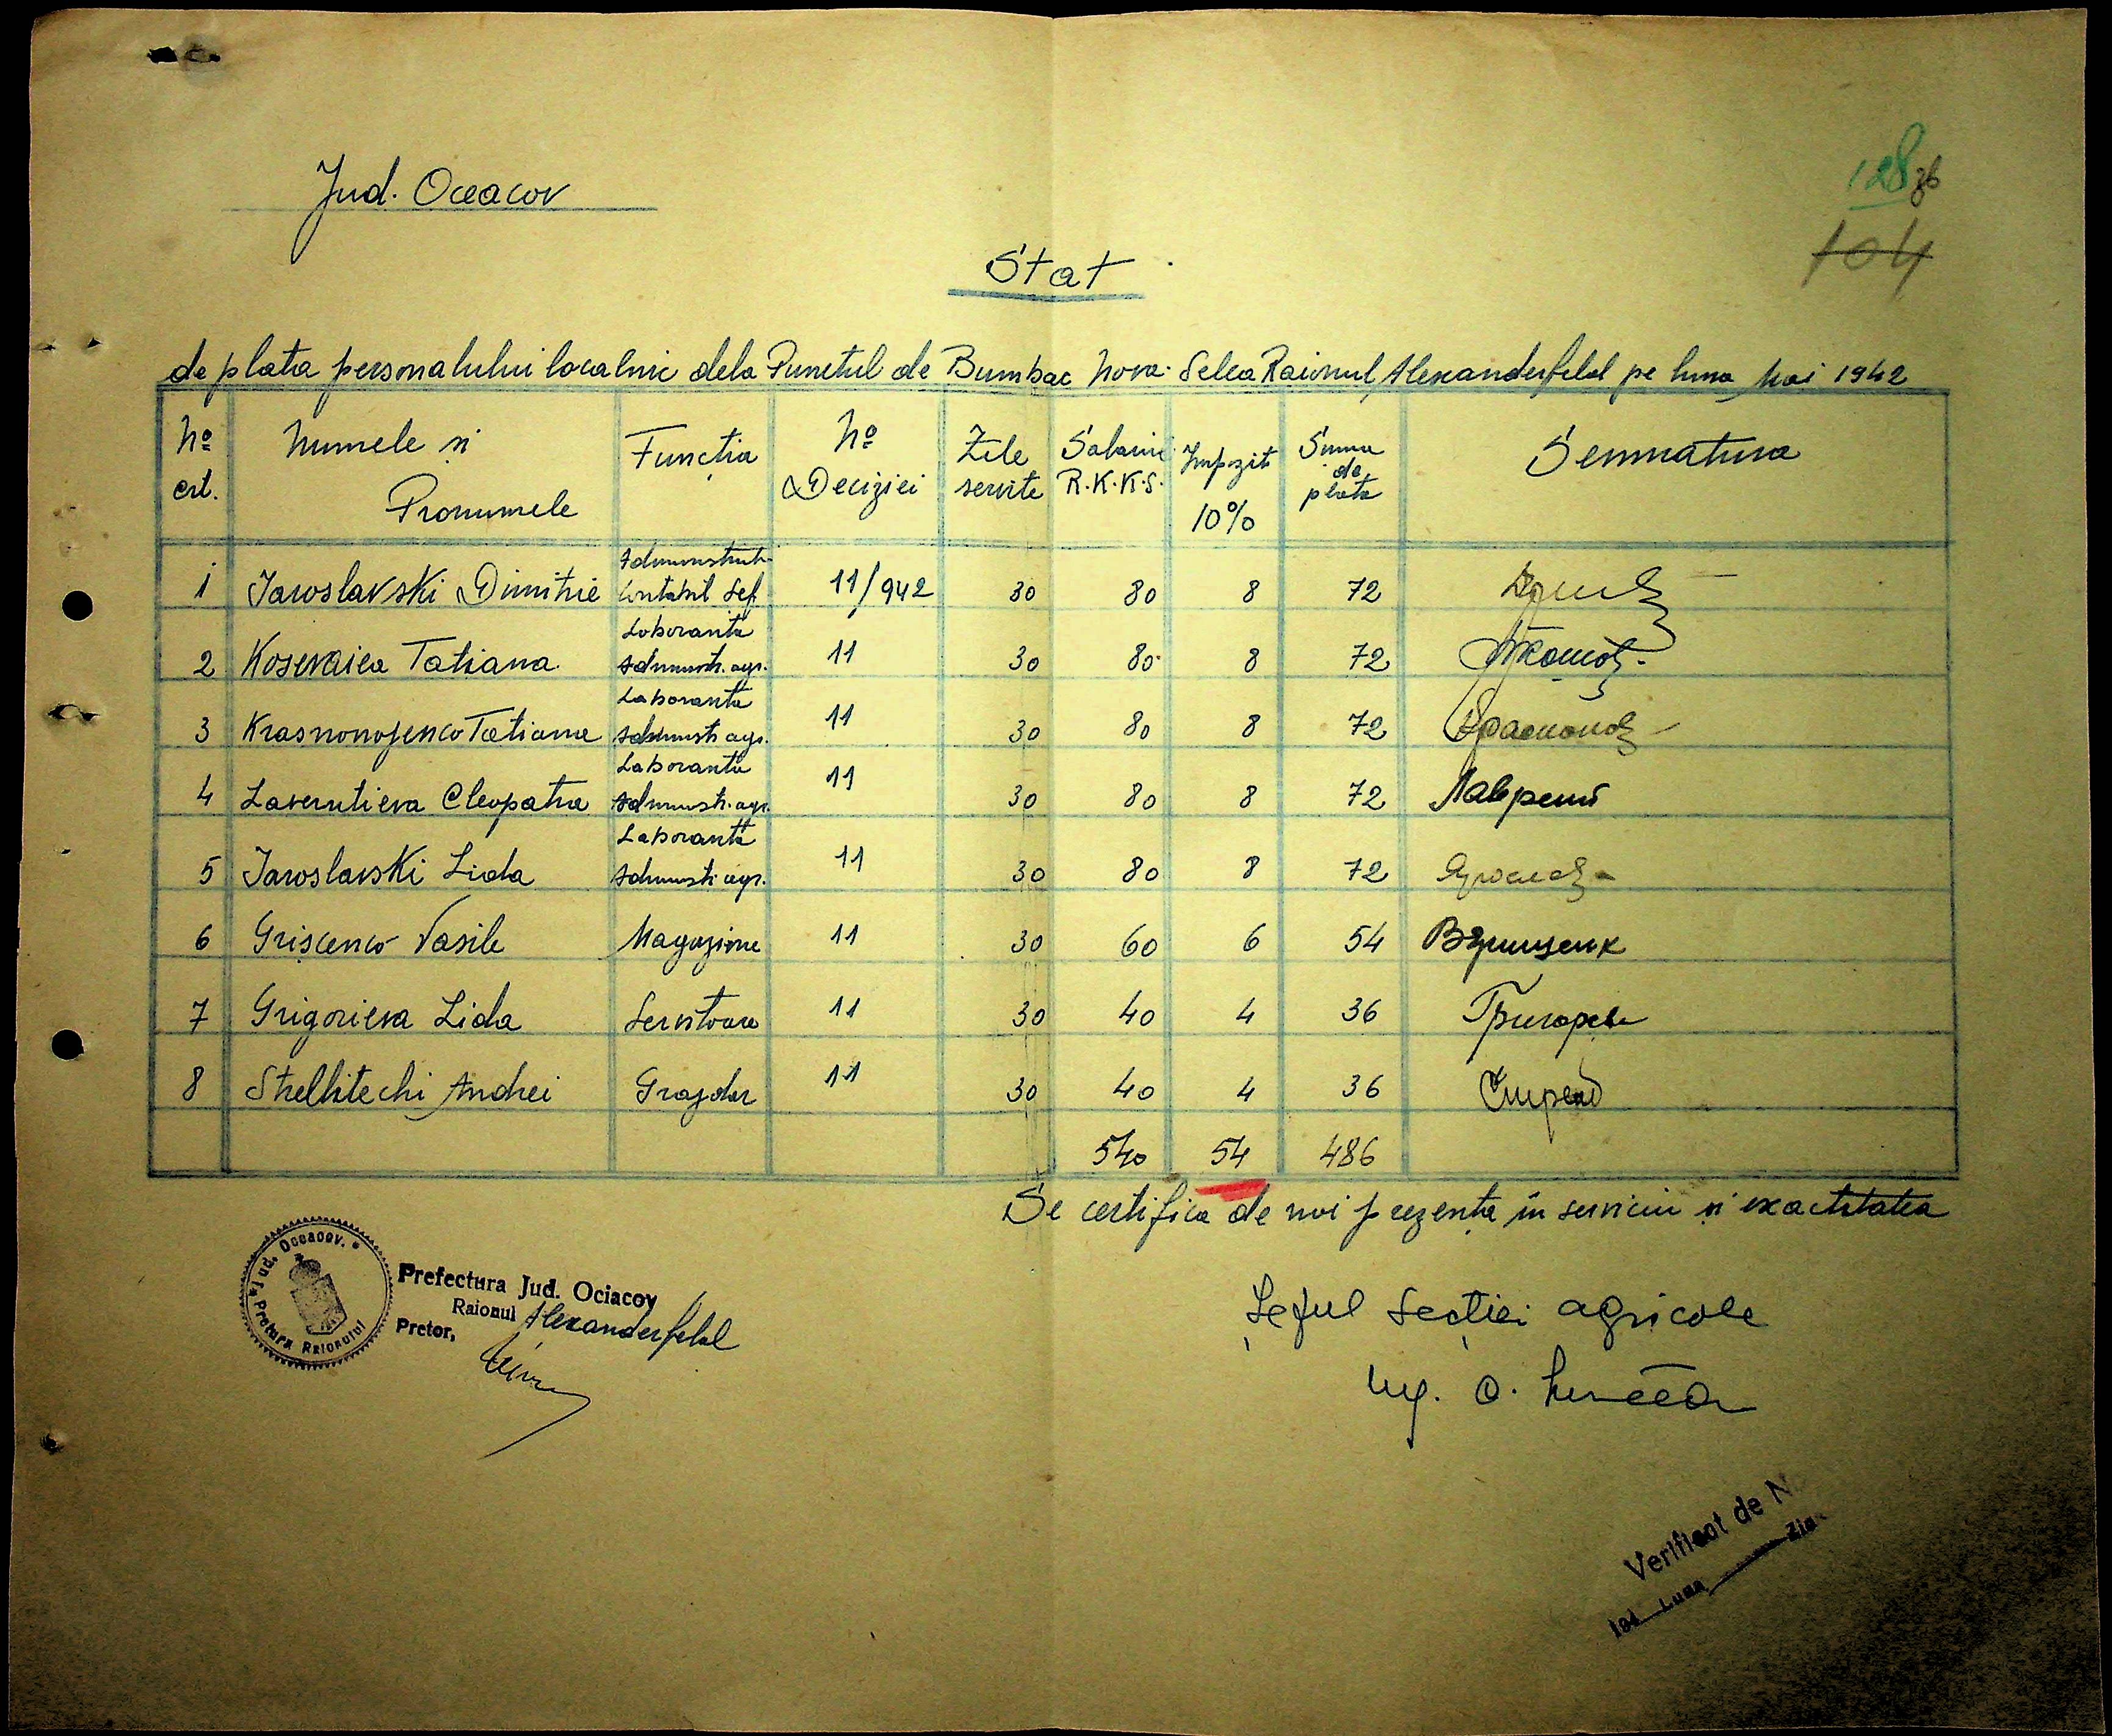 Jud. Oceacov
128
104
Stat
de plata personalului localnic dela Punctul de Bumbac Nova-Selca Raionul Alexanderfeld pe luna Mai 1942
No crt. Numele și Pronumele Funcția No Deciziei Zile servite Salariu R.K.K.S. Impozit 10% Suma de plata Semnatura
1 Iaroslavski Dimitrie Administrat. Contabil Șef 11/942 30 80 8 72
2 Tatiana Laboranta administr. agr. 11 30 80 8 72
3 Krasnonojenco Tatiana Laboranta administr. agr. 11 30 80 8 72
4 Laverntieva Cleopatra Laboranta administr. agr. 11 30 80 8 72 Лаврент
5 Iaroslavski Lida Laboranta administr. agr. 11 30 80 8 72
6 Grișcenco Vasile Magazine 11 30 60 6 54 ВГрищенк
7 Grigorieva Lida Servitoare 11 30 40 4 36 Григорев
8 Andrei Grajdar 11 30 40 4 36
540 54 486
Se certifica de noi prezența în serviciu și exactitatea
Jud. Oceacov. Pretura Raionului
Prefectura Jud. Ociacov
Raionul Alexanderfeld
Pretor,
Șeful Secției agricole
Ing. O.
Verificat de N
194 Luna Ziua